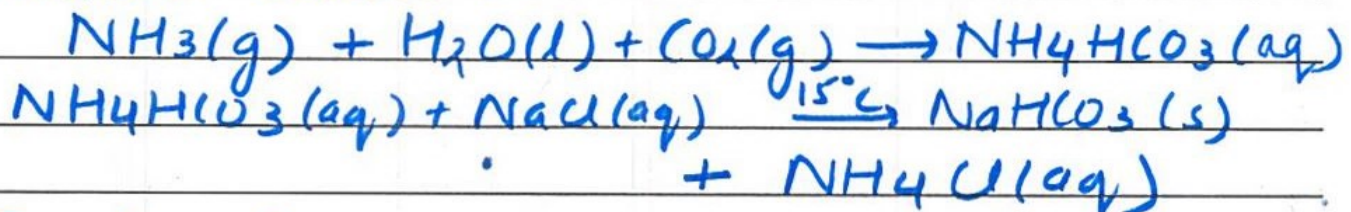 NH3(g) + H2O(l) + CO2(g) → NH4HCO3(aq)
NH4HCO3(aq) + NaCl(aq) 15°C → NaHCO3(s)
+ NH4Cl(aq)